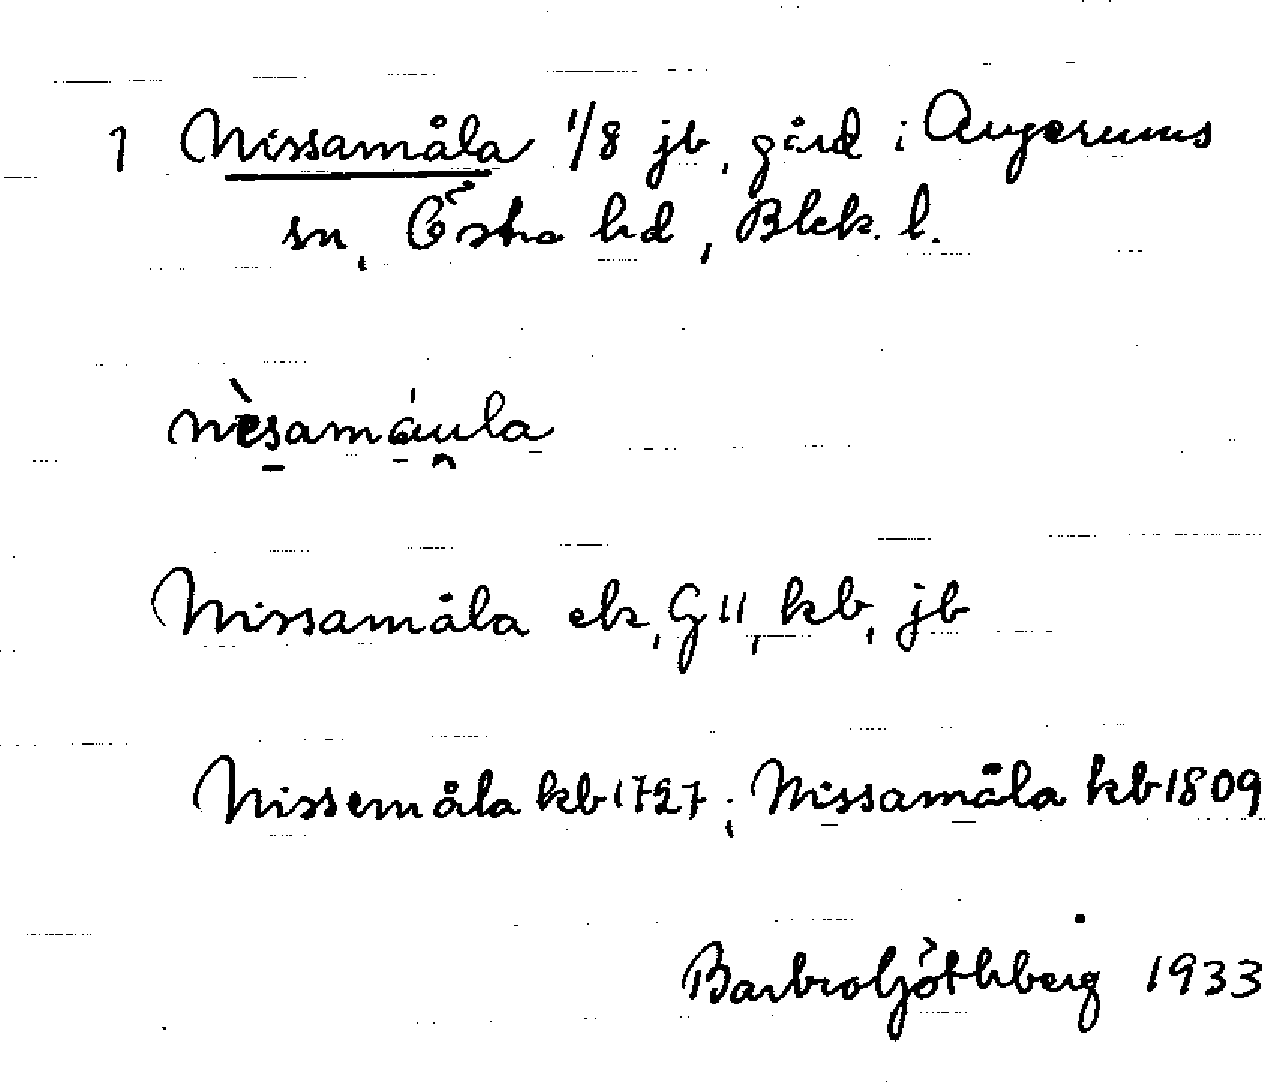 1 Nissamåla 1/8 jb, gård i Augerums
sn, Östra hd, Blek. l.
nèsamáu̯la
Nissamåla ek, G 11, kb, jb
Nissemåla kb 1727; Nissamåla kb 1809
Barbro Göthberg 1933